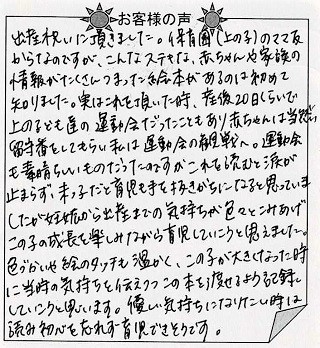 お客様の声
出産祝いに頂きました。保育園(上の子)のママ友
からなのですが、こんなステキな、赤ちゃんや家族の
情報がたくさんつまった絵本があるのは初めて
知りました。実はこれを頂いた時、産後20日くらいで
上の子ども達の運動会だったこともあり赤ちゃんは当然
留守番をしてもらい私は運動会の観戦へ。運動会
も素晴らしいものだったのですがこれを読むと涙が
止まらず、末っ子だと育児も手を抜きがちになると思っていま
したが妊娠から出産までの気持ちが色々とこみあげ
この子の成長を楽しみながら育児していこうと思えました。
色づかいや絵のタッチも温かく、この子が大きくなった時
に当時の気持ちを伝えつつこの本を渡せるよう記録
していこうと思います。優しい気持ちになりたい時は
読み初心を忘れず育児できそうです。